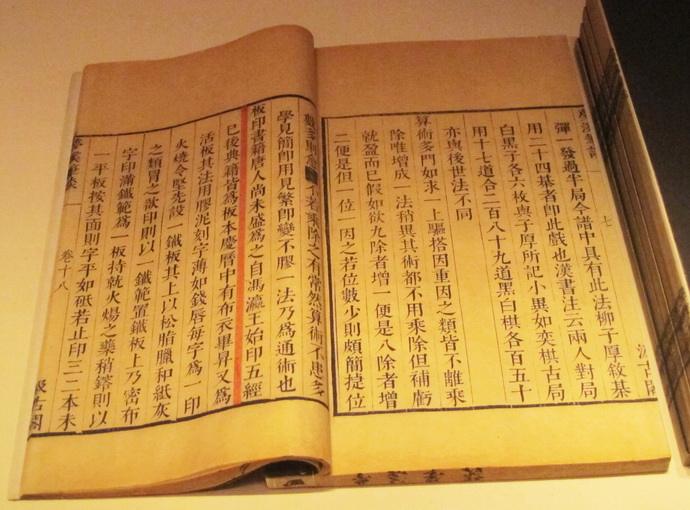 彈一發過半局今譜中具有此法柳子厚敘棊
用二十四棊者卽此戲也漢書注云兩人對局
白黑子各六枚與子厚所記小異如奕棋古局
用十七道合二百八十九道黑白棋各百五十
亦與後世法不同
算術多門如求一上驅搭因重因之類皆不離乘
除唯增成一法稍異其術都不用乘除但補虧
就盈而已假如欲九除者增一便是八除者增
二便是但一位一因之若位數少則頗簡捷位
學見簡卽用見繁卽變不膠一法乃爲通術也
板印書籍唐人尚未盛爲之自馮瀛王始印五經
已後典籍皆爲板本慶曆中有布衣畢昇又爲
活板其法用膠泥刻字薄如錢唇每字爲一印
火燒令堅先設一鐵板其上以松脂臘和紙灰
之類冒之欲印則以一鐵範置鐵板上乃密布
字印滿鐵範爲一板持就火煬之藥稍鎔則以
一平板按其面則字平如砥若止印三二本未
夢溪筆談
卷十八
汲古閣